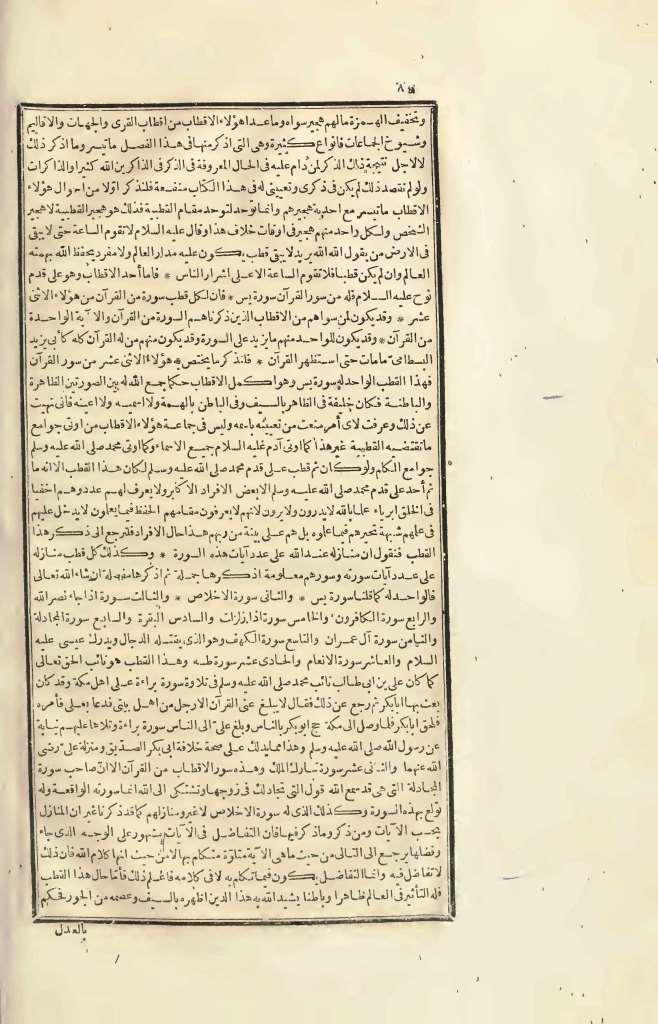 ٨٤
وتخفيف الهمزة مالهم هجير سواه وما عدا هؤلاء الاقطاب من اقطاب القرى والجهات والاقاليم
وشيوخ الجماعات فانواع كثيرة وهى التى اذكر منها فى هذا الفصل ما تيسر وما اذكر ذلك
لالاجل نتيجة ذلك الذكر لمن دام عليه فى الحال المعروفة فى الذكر فى الذاكرين الله كثيرا والذاكرات
ولو لم نقصد ذلك لم يكن فى ذكرى وتعيينى له فى هذا الكتاب منفعة فلنذكر اولا من احوال هؤلاء
الاقطاب ما تيسر مع احدية هجيرهم وانما توحد لتوحد مقام القطبية فذلك هو هجير القطبية لا هجير
الشخص ولكل واحد منهم هجير فى اوقات خلاف هذا وقال عليه السلام لا تقوم الساعة حتى لا يبقى
فى الارض من يقول الله الله يريد لا يبقى قطب يكون عليه مدار العالم ولا مفرد يحفظ الله بهمته
العالم وان لم يكن قطبا فلا تقوم الساعة الا على اشرار الناس * فاما أحد الاقطاب وهو على قدم
نوح عليه السلام فله من سور القرآن سورة يس * فان لكل قطب سورة من القرآن من هؤلاء الاثنى
عشر * وقد يكون لمن سواهم من الاقطاب الذين ذكرناهم السورة من القرآن والآية الواحدة
من القرآن * وقد يكون للواحد منهم ما يزيد على السورة وقد يكون منهم من له القرآن كله كأبى يزيد
البسطامى ما مات حتى استظهر القرآن * فلنذكر ما يختص به هؤلاء الاثنى عشر من سور القرآن
فهذا القطب الواحد له سورة يس وهو اكمل الاقطاب حكما جمع الله له بين الصورتين الظاهرة
والباطنة فكان خليفة فى الظاهر بالسيف وفى الباطن بالهمة ولا اسميه ولا اعينه فانى نهيت
عن ذلك وعرفت لاى أمر منعت من تعيينه باسمه وليس فى جماعة هؤلاء الاقطاب من اوتى جوامع
ما تقتضيه القطبية غير هذا كما اوتى آدم عليه السلام جميع الاسماء وكما اوتى محمد صلى الله عليه وسلم
جوامع الكلم ولو كان ثم قطب على قدم محمد صلى الله عليه وسلم لكان هذا القطب الا انه ما
ثم أحد على قدم محمد صلى الله عليه وسلم الا بعض الافراد الاكابر ولا يعرف لهم عدد وهم اخفيا
فى الخلق ابرياء علماء بالله لا يدرون ولا يرون لانهم لا يعرفون مقامهم الحفظ فيما يعلمون لا يدخل عليهم
فى علمهم شبهة تحيرهم فيما علموه بل هم على بينة من ربهم هذا حال الافراد فلنرجع الى ذكر هذا
القطب فنقول ان منازله عند الله على عدد آيات هذه السورة * وكذلك كل قطب منازله
على عدد آيات سورته وسورهم معلومة اذكرها جملة ثم اذكرها مفصلة ان شاء الله تعالى
فالواحد له كما قلنا سورة يس * والثانى سورة الاخلاص * والثالث سورة اذا جاء نصر الله
والرابع سورة الكافرون، والخامس سورة اذا زلزلت والسادس البقرة والسابع سورة المجادلة
والثامن سورة آل عمران والتاسع سورة الكهف وهو الذى يقتله الدجال ويدرك عيسى عليه
السلام والعاشر سورة الانعام والحادى عشر سورة طه وهذا القطب هو نائب الحق تعالى
كما كان على بن ابى طالب نائب محمد صلى الله عليه وسلم فى تلاوة سورة براءة على اهل مكة وقد كان
بعث بها ابا بكر ثم رجع عن ذلك فقال لا يبلغ عنى القرآن الا رجل من اهل بيتى فدعا بعلى فأمره
فلحق ابابكر فلما وصل الى مكة حج ابوبكر بالناس وبلغ على الى الناس سورة براءة وتلاها عليهم نيابة
عن رسول الله صلى الله عليه وسلم وهذا مما يدلك على صحة خلافة ابى بكر الصديق ومنزلة على رضى
الله عنهما والثانى عشر سورة تبارك الملك وهذه سور الاقطاب من القرآن الا ان صاحب سورة
المجادلة التى هى قد سمع الله قول التى تجادلك فى زوجها وتشتكى الى الله انما سورته الواقعة وله
تولع بهذه السورة وكذلك الذى له سورة الاخلاص لا غير ومنازلهم كما قد ذكرنا غير ان المنازل
بحسب الآيات ومن ذكر وما ذكر فيها فان التفاضل فى الآيات مشهور على الوجه الذى جاء
وفضلها يرجع الى التالى من حيث ما هى الآية متلوّة متكلم بها لا من حيث انها كلام الله فان ذلك
لا تفاضل فيه وانما التفاضل يكون فيما تكلم به لا فى كلامه فاعلم ذلك فأما حال هذا القطب
فله التأثير فى العالم ظاهرا وباطنا يشيد الله به هذا الدين اظهره بالسيف وعصمه من الجور فحكم
بالعدل